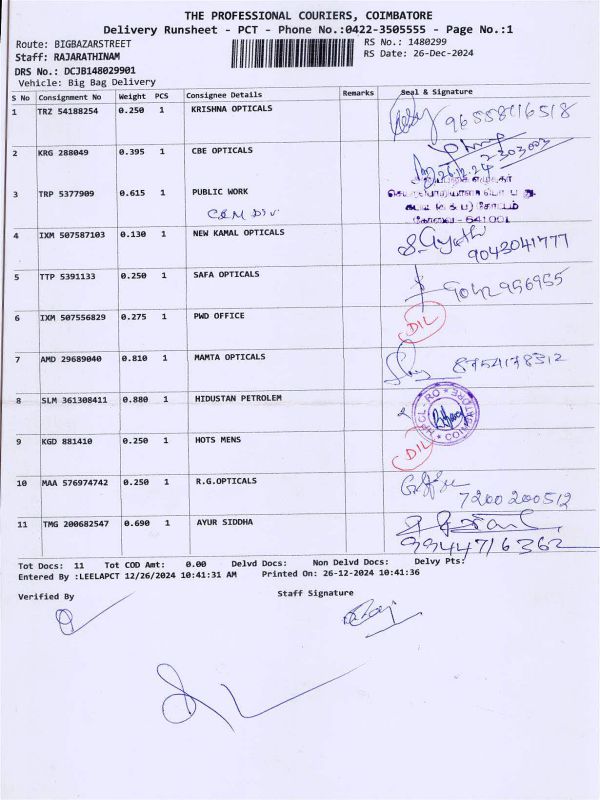 THE PROFESSIONAL COURIERS, COIMBATORE
Delivery Runsheet - PCT - Phone No.:0422-3505555 - Page No.:1
Route: BIGBAZARSTREET RS No.: 1480299
Staff: RAJARATHINAM RS Date: 26-Dec-2024
DRS No.: DCJB148029901
Vehicle: Big Bag Delivery
S No Consignment No Weight PCS Consignee Details Remarks Seal & Signature
1 TRZ 54188254 0.250 1 KRISHNA OPTICALS 9655846518
2 KRG 288049 0.395 1 CBE OPTICALS 2303003
26.12.24
3 TRP 5377909 0.615 1 PUBLIC WORK
கோவை - 641001
4 IXM 507587103 0.130 1 NEW KAMAL OPTICALS 9043041777
5 TTP 5391133 0.250 1 SAFA OPTICALS 9042956955
6 IXM 507556829 0.275 1 PWD OFFICE DIL
7 AMD 29689040 0.810 1 MAMTA OPTICALS 8754178312
8 SLM 361308411 0.880 1 HIDUSTAN PETROLEM
HPCL - RO * COIMBATORE *
9 KGD 881410 0.250 1 HOTS MENS DIL
10 MAA 576974742 0.250 1 R.G.OPTICALS 7200200512
11 TMG 200682547 0.690 1 AYUR SIDDHA 9944716362
Tot Docs: 11 Tot COD Amt: 0.00 Delvd Docs: Non Delvd Docs: Delvy Pts:
Entered By :LEELAPCT 12/26/2024 10:41:31 AM Printed On: 26-12-2024 10:41:36
Verified By Staff Signature